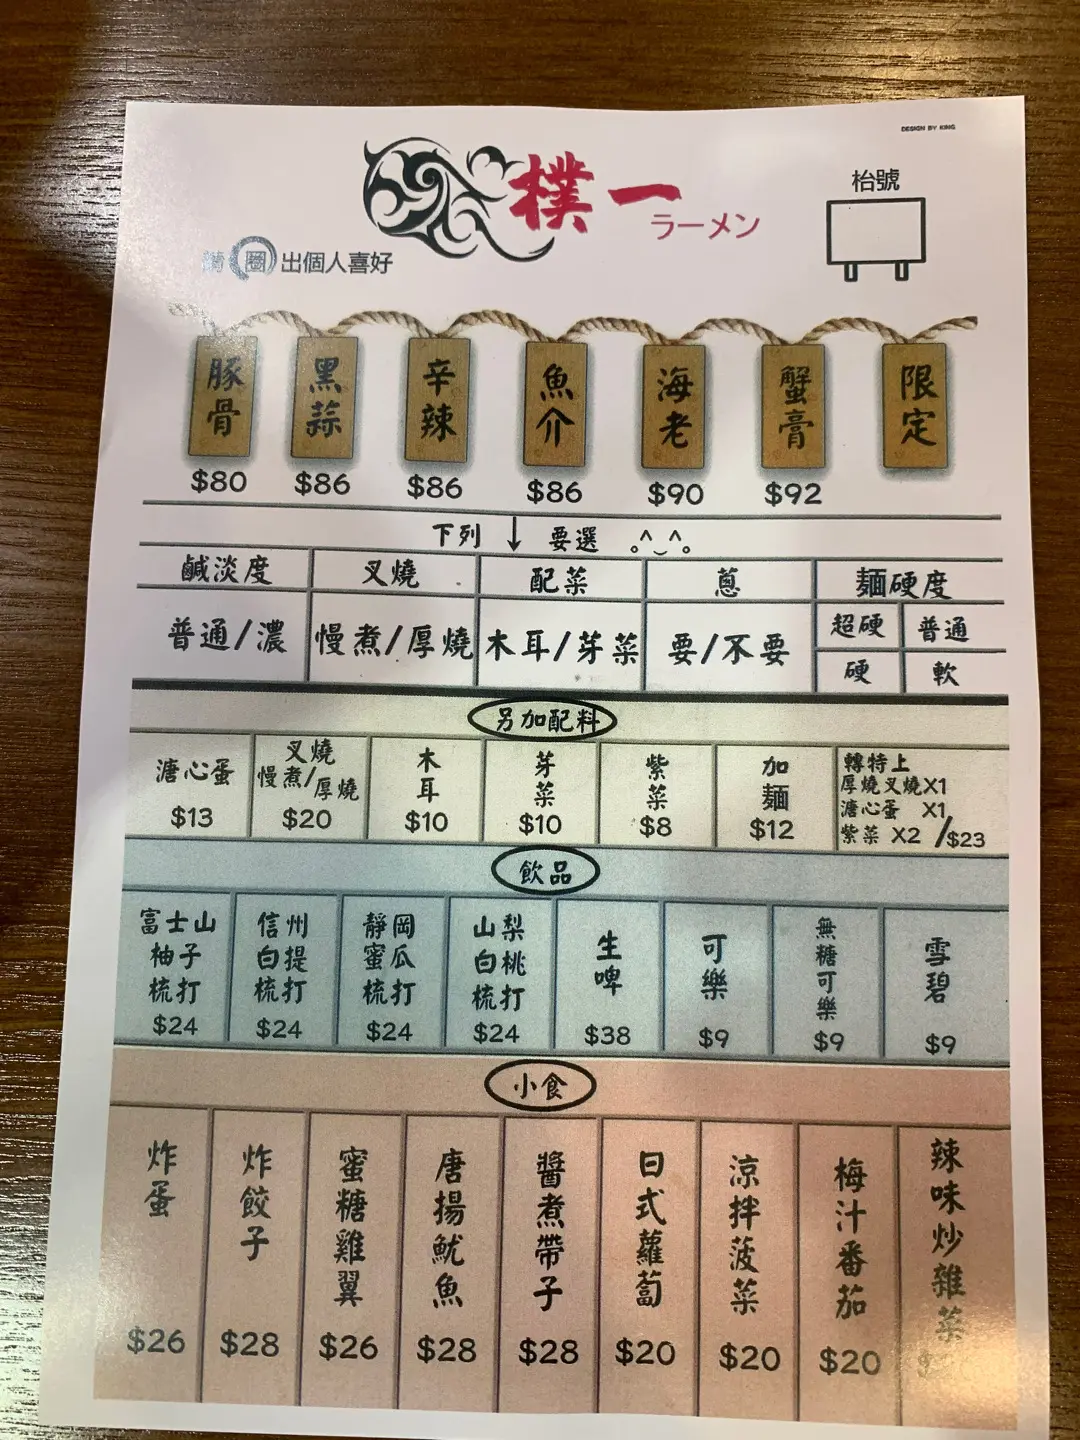 DESIGN BY KING
樸一
ラーメン
枱號
請圈出個人喜好
豚骨 $80
黑蒜 $86
辛辣 $86
魚介 $86
海老 $90
蟹膏 $92
限定
下列↓要選 。^‿^。
鹹淡度
普通/濃
叉燒
慢煮/厚燒
配菜
木耳/芽菜
蔥
要/不要
麵硬度
超硬
普通
硬
軟
另加配料
溏心蛋
$13
叉燒
慢煮/厚燒
$20
木耳
$10
芽菜
$10
紫菜
$8
加麵
$12
轉特上
厚燒叉燒X1
溏心蛋 X1
紫菜 X2 /$23
飲品
富士山
柚子
梳打
$24
信州
白提
梳打
$24
靜岡
蜜瓜
梳打
$24
山梨
白桃
梳打
$24
生啤
$38
可樂
$9
無糖可樂
$9
雪碧
$9
小食
炸蛋
$26
炸餃子
$28
蜜糖雞翼
$26
唐揚魷魚
$28
醬煮帶子
$28
日式蘿蔔
$20
涼拌菠菜
$20
梅汁番茄
$20
辣味炒雜菜